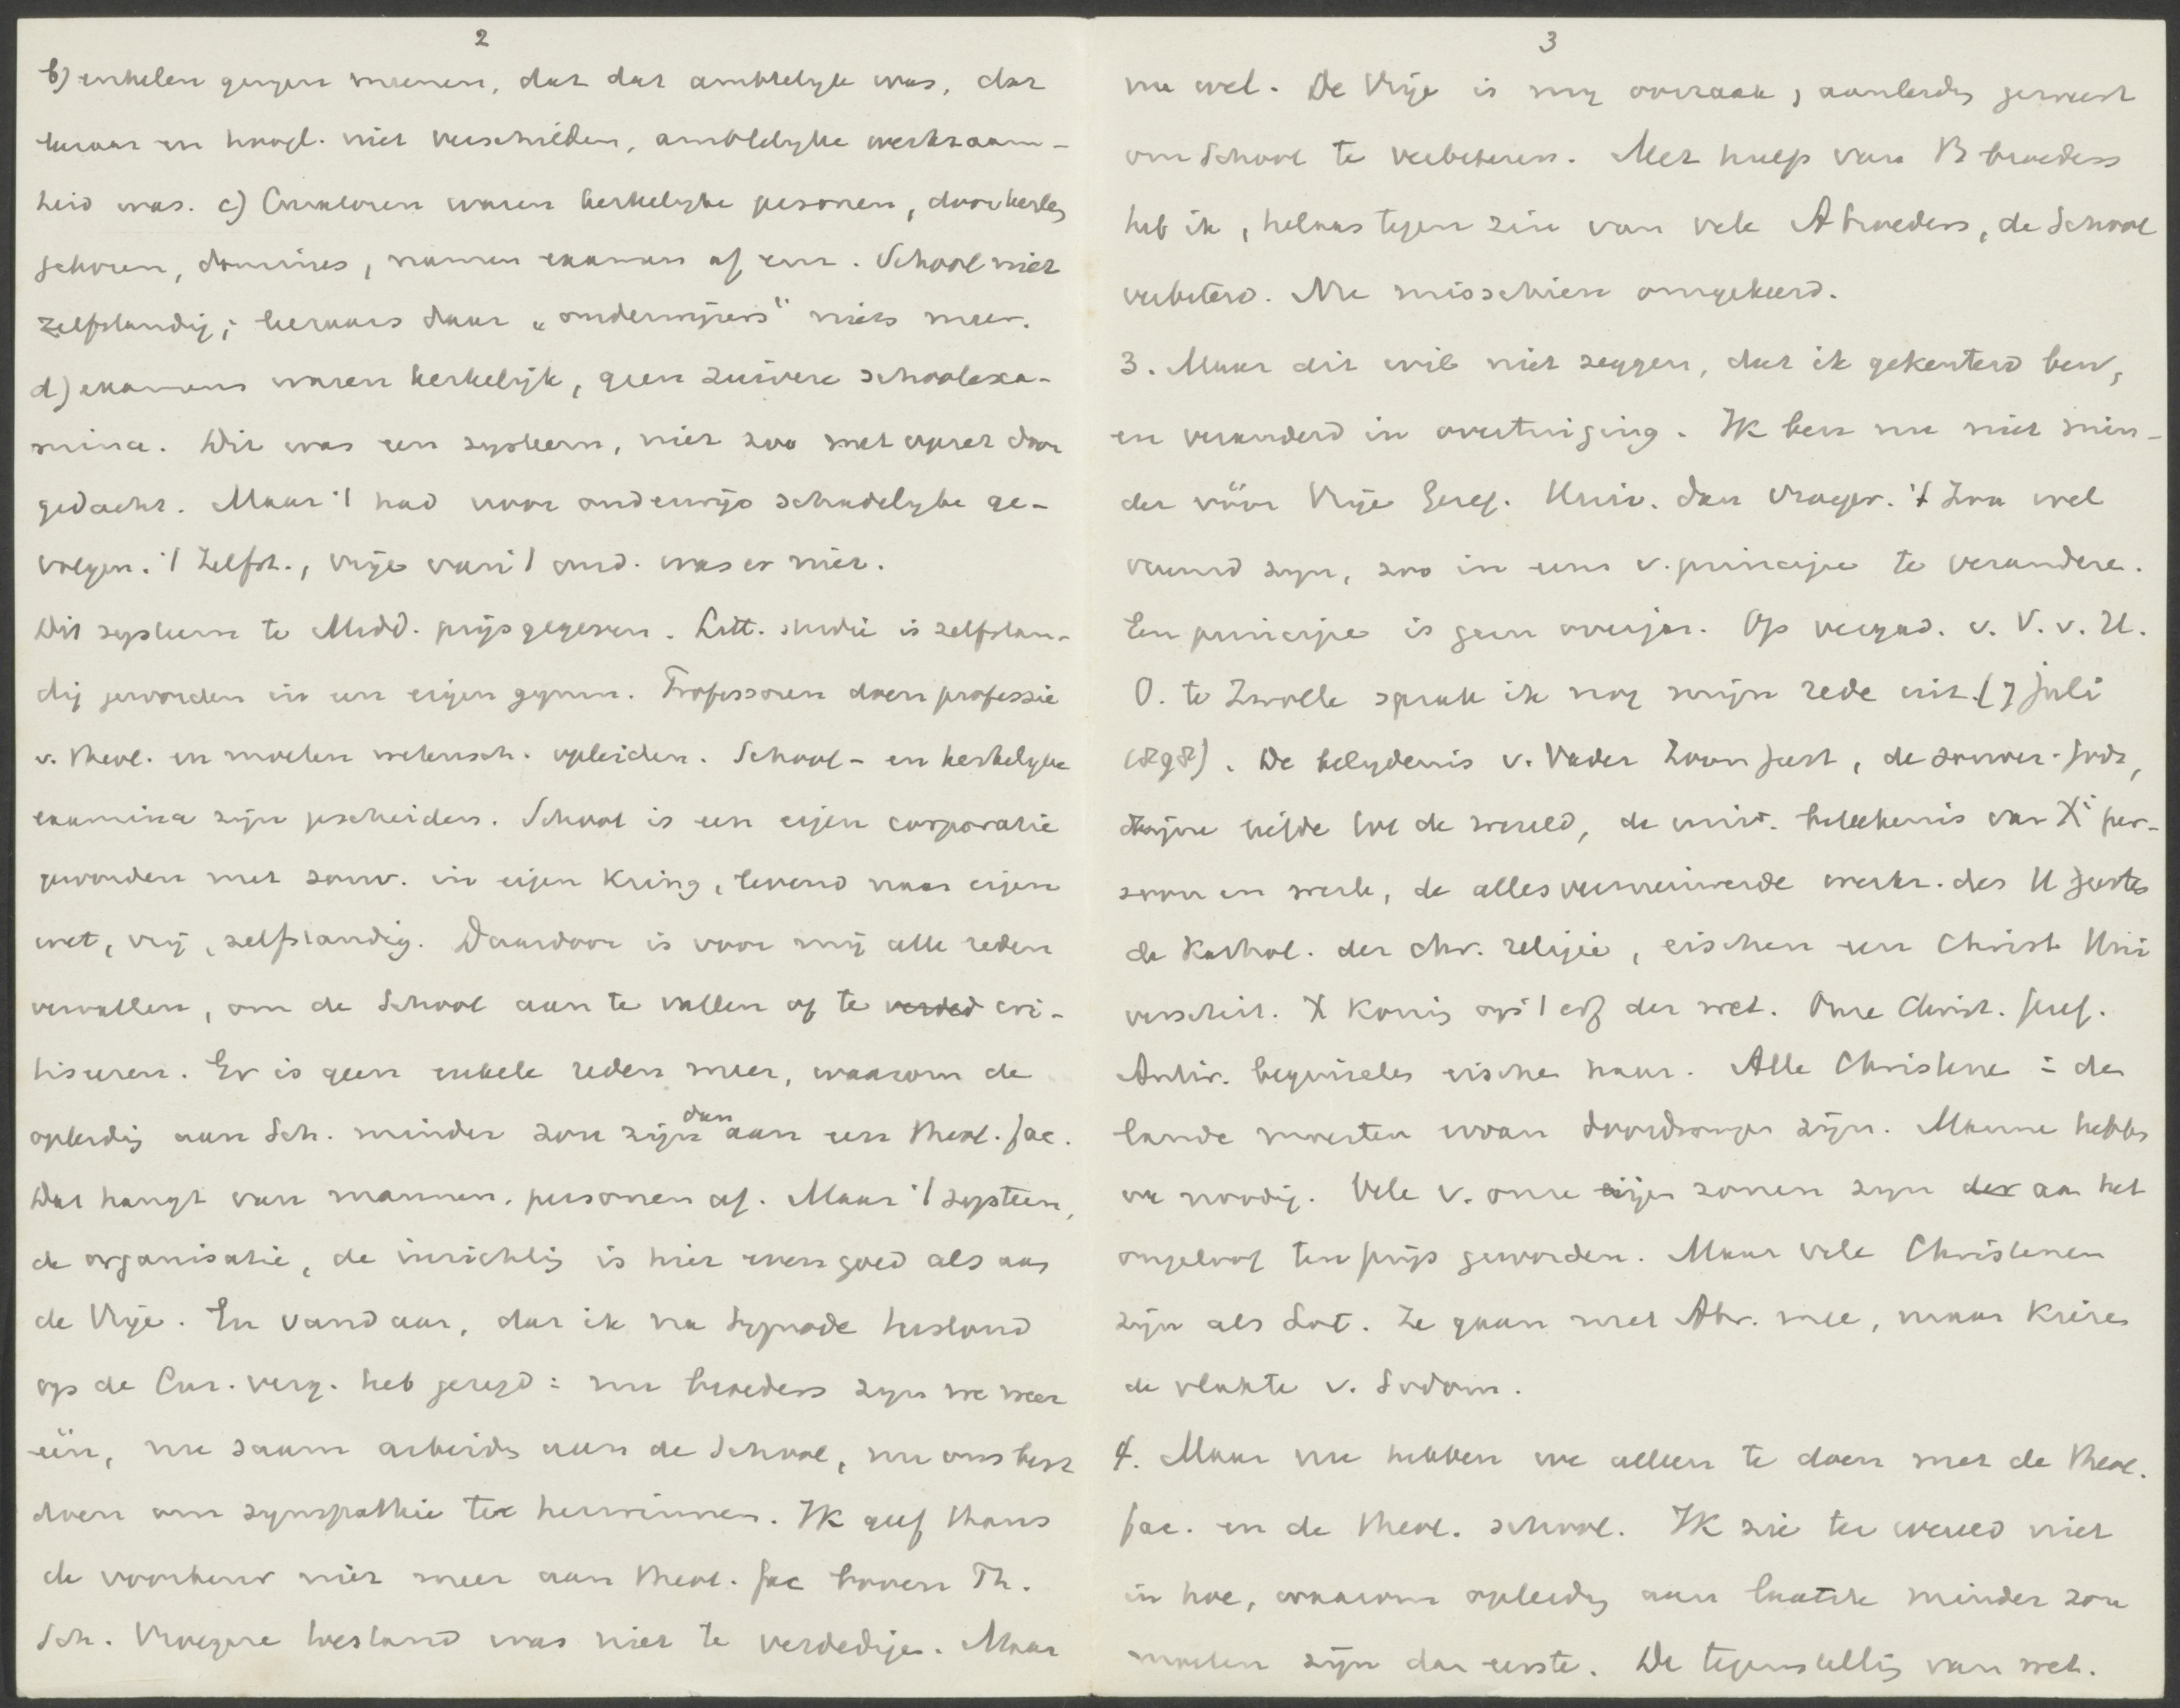 2
b) enkelen gingen meenen, dat dat ambtelijk was, dat
leraar en hoogl. niet verschilden, ambtelijke werkzaam-
heid was. c) Curatoren waren kerkelyke personen, door kerken
gekozen, dominees, namen examen af enz. School niet
zelfstandig; leraars daar „onderwijzers" niets meer.
d) examens waren kerkelijk, geen zuivere schoolexa-
mina. Dit was een systeem, niet zoo met opzet door
gedacht. Maar 't had voor onderwijs schadelyke ge-
volgen. 't Zelfst., vrije van 't ond. was er niet.
Dit systeem te Midd. prijsgegeven. Litt. studie is zelfstan-
dig geworden in een eigen gymn. Professoren doen professie
v. theol. en moeten wetensch. opleiden. School- en kerkelyke
examina zijn gescheiden. School is een eigen corporatie
geworden met souv. in eigen kring, levend naar eigen
wet, vrij, zelfstandig. Daardoor is voor mij alle reden
vervallen, om de School aan te vallen of te verded cri-
tiseren. Er is geen enkele reden meer, waarom de
opleidig aan Sch. minder zou zijn dan aan een theol. fac.
Dat hangt van mannen, personen af. Maar 't systeem,
de organisatie, de inrichtig is hier even goed als aan
de Vrije. En vandaar, dat ik na Synode terstond
op de Cur. verg. heb gezegd: nu broeders zyn we weer
één, nu saam arbeiden aan de School, nu ons best
doen om sympathie te herwinnen. Ik geef thans
de voorkeur niet meer aan theol. fac boven Th.
Sch. Vroegere toestand was niet te verdedigen. Maar
3
nu wel. De Vrije is my oorzaak, aanleidg geweest
om School te verbeteren. Met hulp van B broeders
heb ik, helaas tegen zin van vele A broeders, de School
verbeterd. Nu misschien omgekeerd.
3. Maar dit wil niet zeggen, dat ik gekenterd ben,
en veranderd in overtuiging. Ik ben nu niet min-
der vóór Vrije Geref. Univ. dan vroeger. 't Zou wel
vreemd zyn, zoo in eens v. principe te veranderen.
Een principe is geen overjas. Op vergad. v. V. v. H.
O. te Zwolle sprak ik nog mijn rede uit (7 Juli
1898). De belydenis v. Vader Zoon Geest, de souver. Gods,
zijne liefde tot de wereld, de univ. beteekenis van X' per-
soon en werk, de alles vernieuwende werkz. des H Geestes
de Kathol. der chr. religie, eischen een Christ. Uni
versiteit. X Konig op 't erf der wet. Onze Christ. Geref.
Antir. beginselen eischen haar. Alle Christenen in de
lande moesten ervan doordrongen zijn. Mannen hebben
we noodig. Vele v. onze eigen zonen zyn der aan het
ongeloof ten prijs geworden. Maar vele Christenen
zijn als Lot. Ze gaan met Abr. mee, maar kiezen
de vlakte v. Sodom.
4. Maar nu hebben we alleen te doen met de Theol.
fac. en de theol. school. Ik zie ter wereld niet
in hoe, waarom opleidg aan laatste minder zou
moeten zijn dan eerste. De tegenstellig van wet.